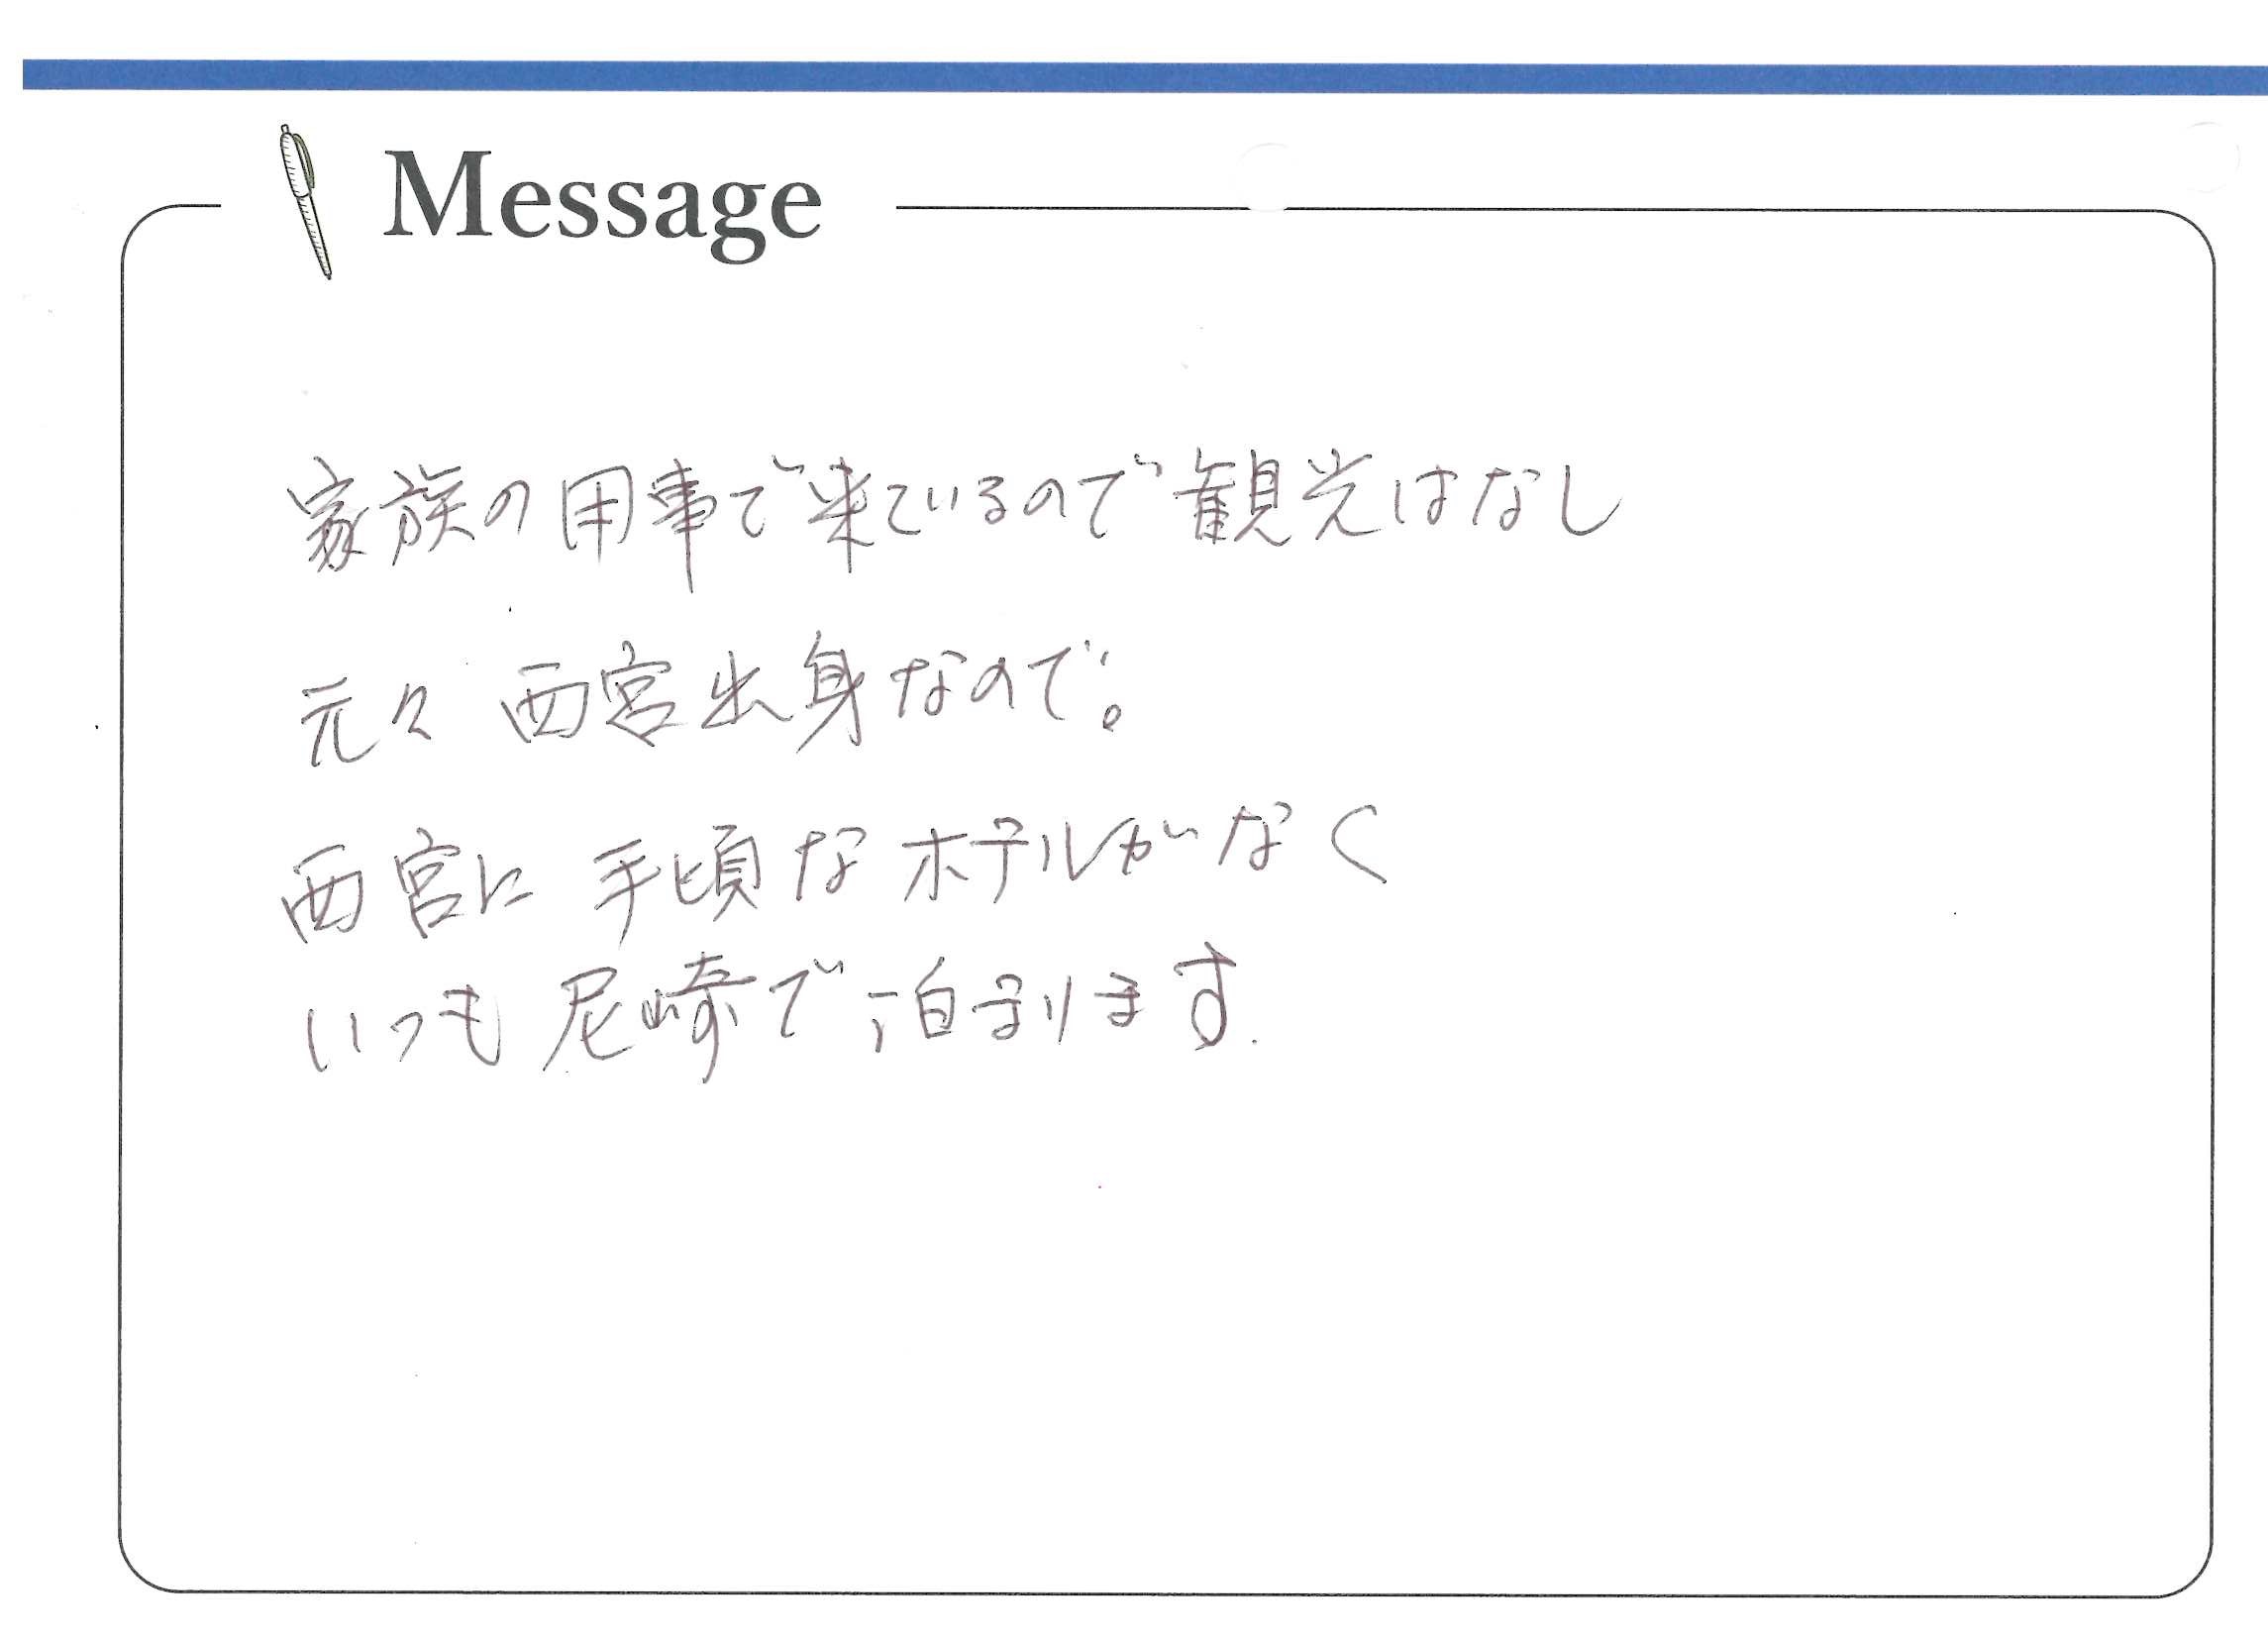 Message
家族の用事で来ているので観光はなし
元々 西宮出身なので。
西宮に 手頃な ホテルがなく
いつも 尼崎で 泊まります.